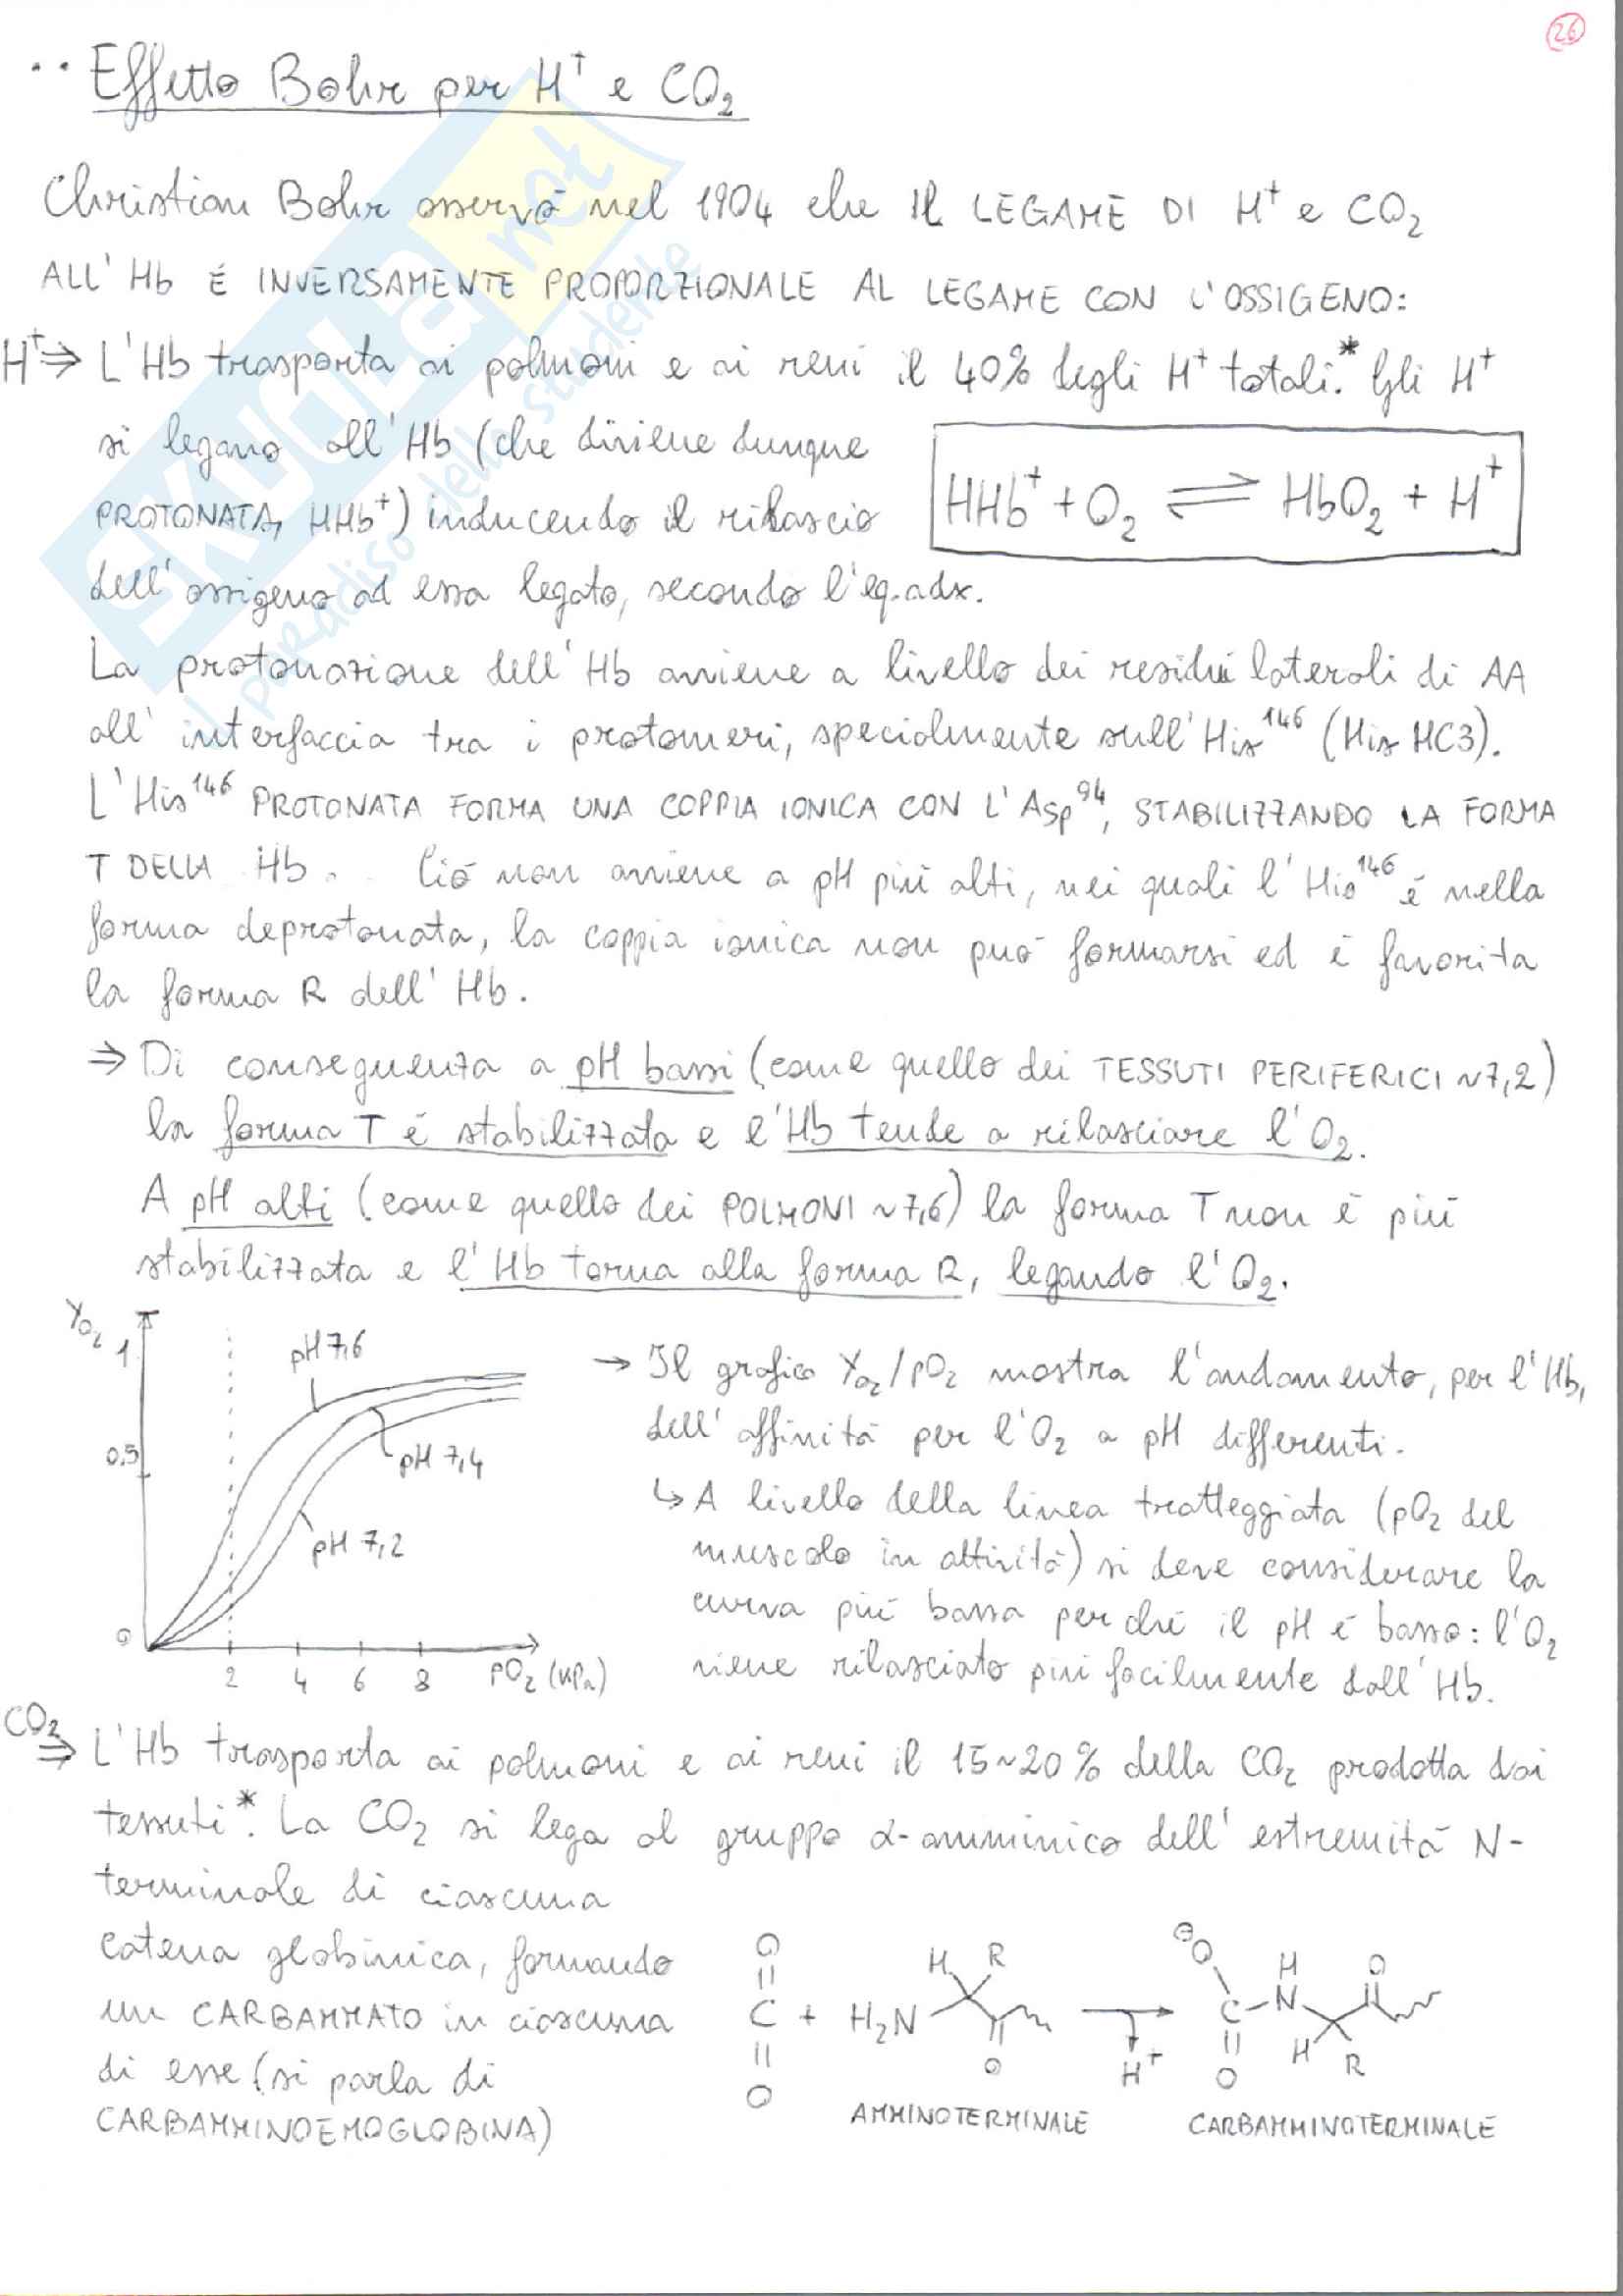 26
·· Effetto Bohr per H⁺ e CO₂
Christian Bohr osservò nel 1904 che il LEGAME DI H⁺ e CO₂
ALL'Hb É INVERSAMENTE PROPORZIONALE AL LEGAME CON L'OSSIGENO:
H⁺⇒ L'Hb trasporta ai polmoni e ai reni il 40% degli H⁺ totali.* Gli H⁺
si legano all'Hb (che diviene dunque
PROTONATA, HHb⁺) inducendo il rilascio
HHb⁺ + O₂ ⇌ HbO₂ + H⁺
dell'ossigeno ad essa legato, secondo l'eq. a dx.
La protonazione dell'Hb avviene a livello dei residui laterali di AA
all'interfaccia tra i protomeri, specialmente sull'His¹⁴⁶ (His HC3).
L'His¹⁴⁶ PROTONATA FORMA UNA COPPIA IONICA CON L'Asp⁹⁴, STABILIZZANDO LA FORMA
T DELLA Hb. Ció non avviene a pH piú alti, nei quali l'His¹⁴⁶ é nella
forma deprotonata, la coppia ionica non puó formarsi ed é favorita
la forma R dell'Hb.
⇒ Di conseguenza a pH bassi (come quello dei TESSUTI PERIFERICI ~7,2)
la forma T é stabilizzata e l'Hb tende a rilasciare l'O₂.
A pH alti (come quello dei POLMONI ~7,6) la forma T non é piú
stabilizzata e l'Hb torna alla forma R, legando l'O₂.
Y O₂
1
0,5
0
pH 7,6
pH 7,4
pH 7,2
2 4 6 8 pO₂ (kPa)
→ Il grafico Y O₂/pO₂ mostra l'andamento, per l'Hb,
dell'affinitá per l'O₂ a pH differenti.
↳ A livello della linea tratteggiata (pO₂ del
muscolo in attivitá) si deve considerare la
curva piú bassa perché il pH é basso: l'O₂
viene rilasciato piú facilmente dall'Hb.
CO₂⇒ L'Hb trasporta ai polmoni e ai reni il 15~20% della CO₂ prodotta dai
tessuti*. La CO₂ si lega al gruppo α-amminico dell'estremitá N-
terminale di ciascuna
catena globinica, formando
un CARBAMMATO in ciascuna
di esse (si parla di
CARBAMMINOEMOGLOBINA)
O
||
C
||
O
+ H₂N
H R
O
H⁺
⊖O
C-N
H
O
H R
O
AMMINOTERMINALE
CARBAMMINOTERMINALE
SKUOLA.net
il paradiso dello studente